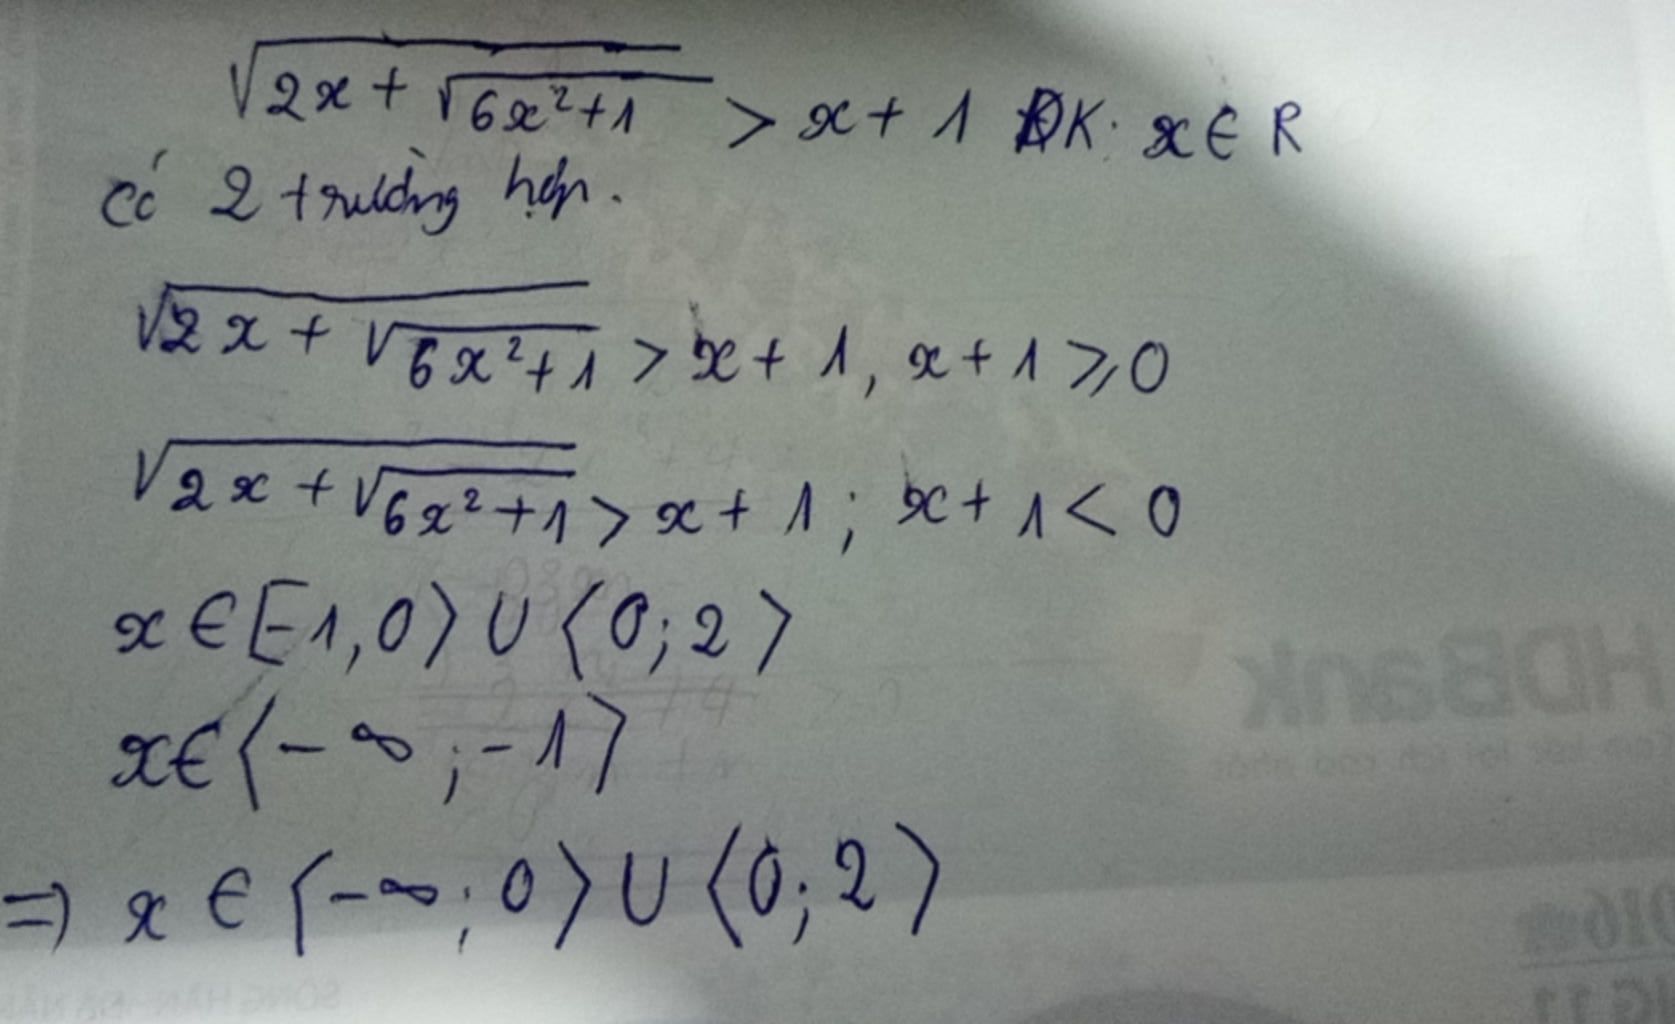 √(2x + √(6x²+1)) > x + 1 ĐK: x ∈ R
có 2 trường hợp.
√(2x + √(6x²+1)) > x + 1, x + 1 ⩾ 0
√(2x + √(6x²+1)) > x + 1; x + 1 < 0
x ∈ [-1, 0⟩ ∪ ⟨0; 2⟩
x ∈ ⟨-∞; -1⟩
⇒ x ∈ ⟨-∞; 0⟩ ∪ ⟨0; 2⟩
HDBank